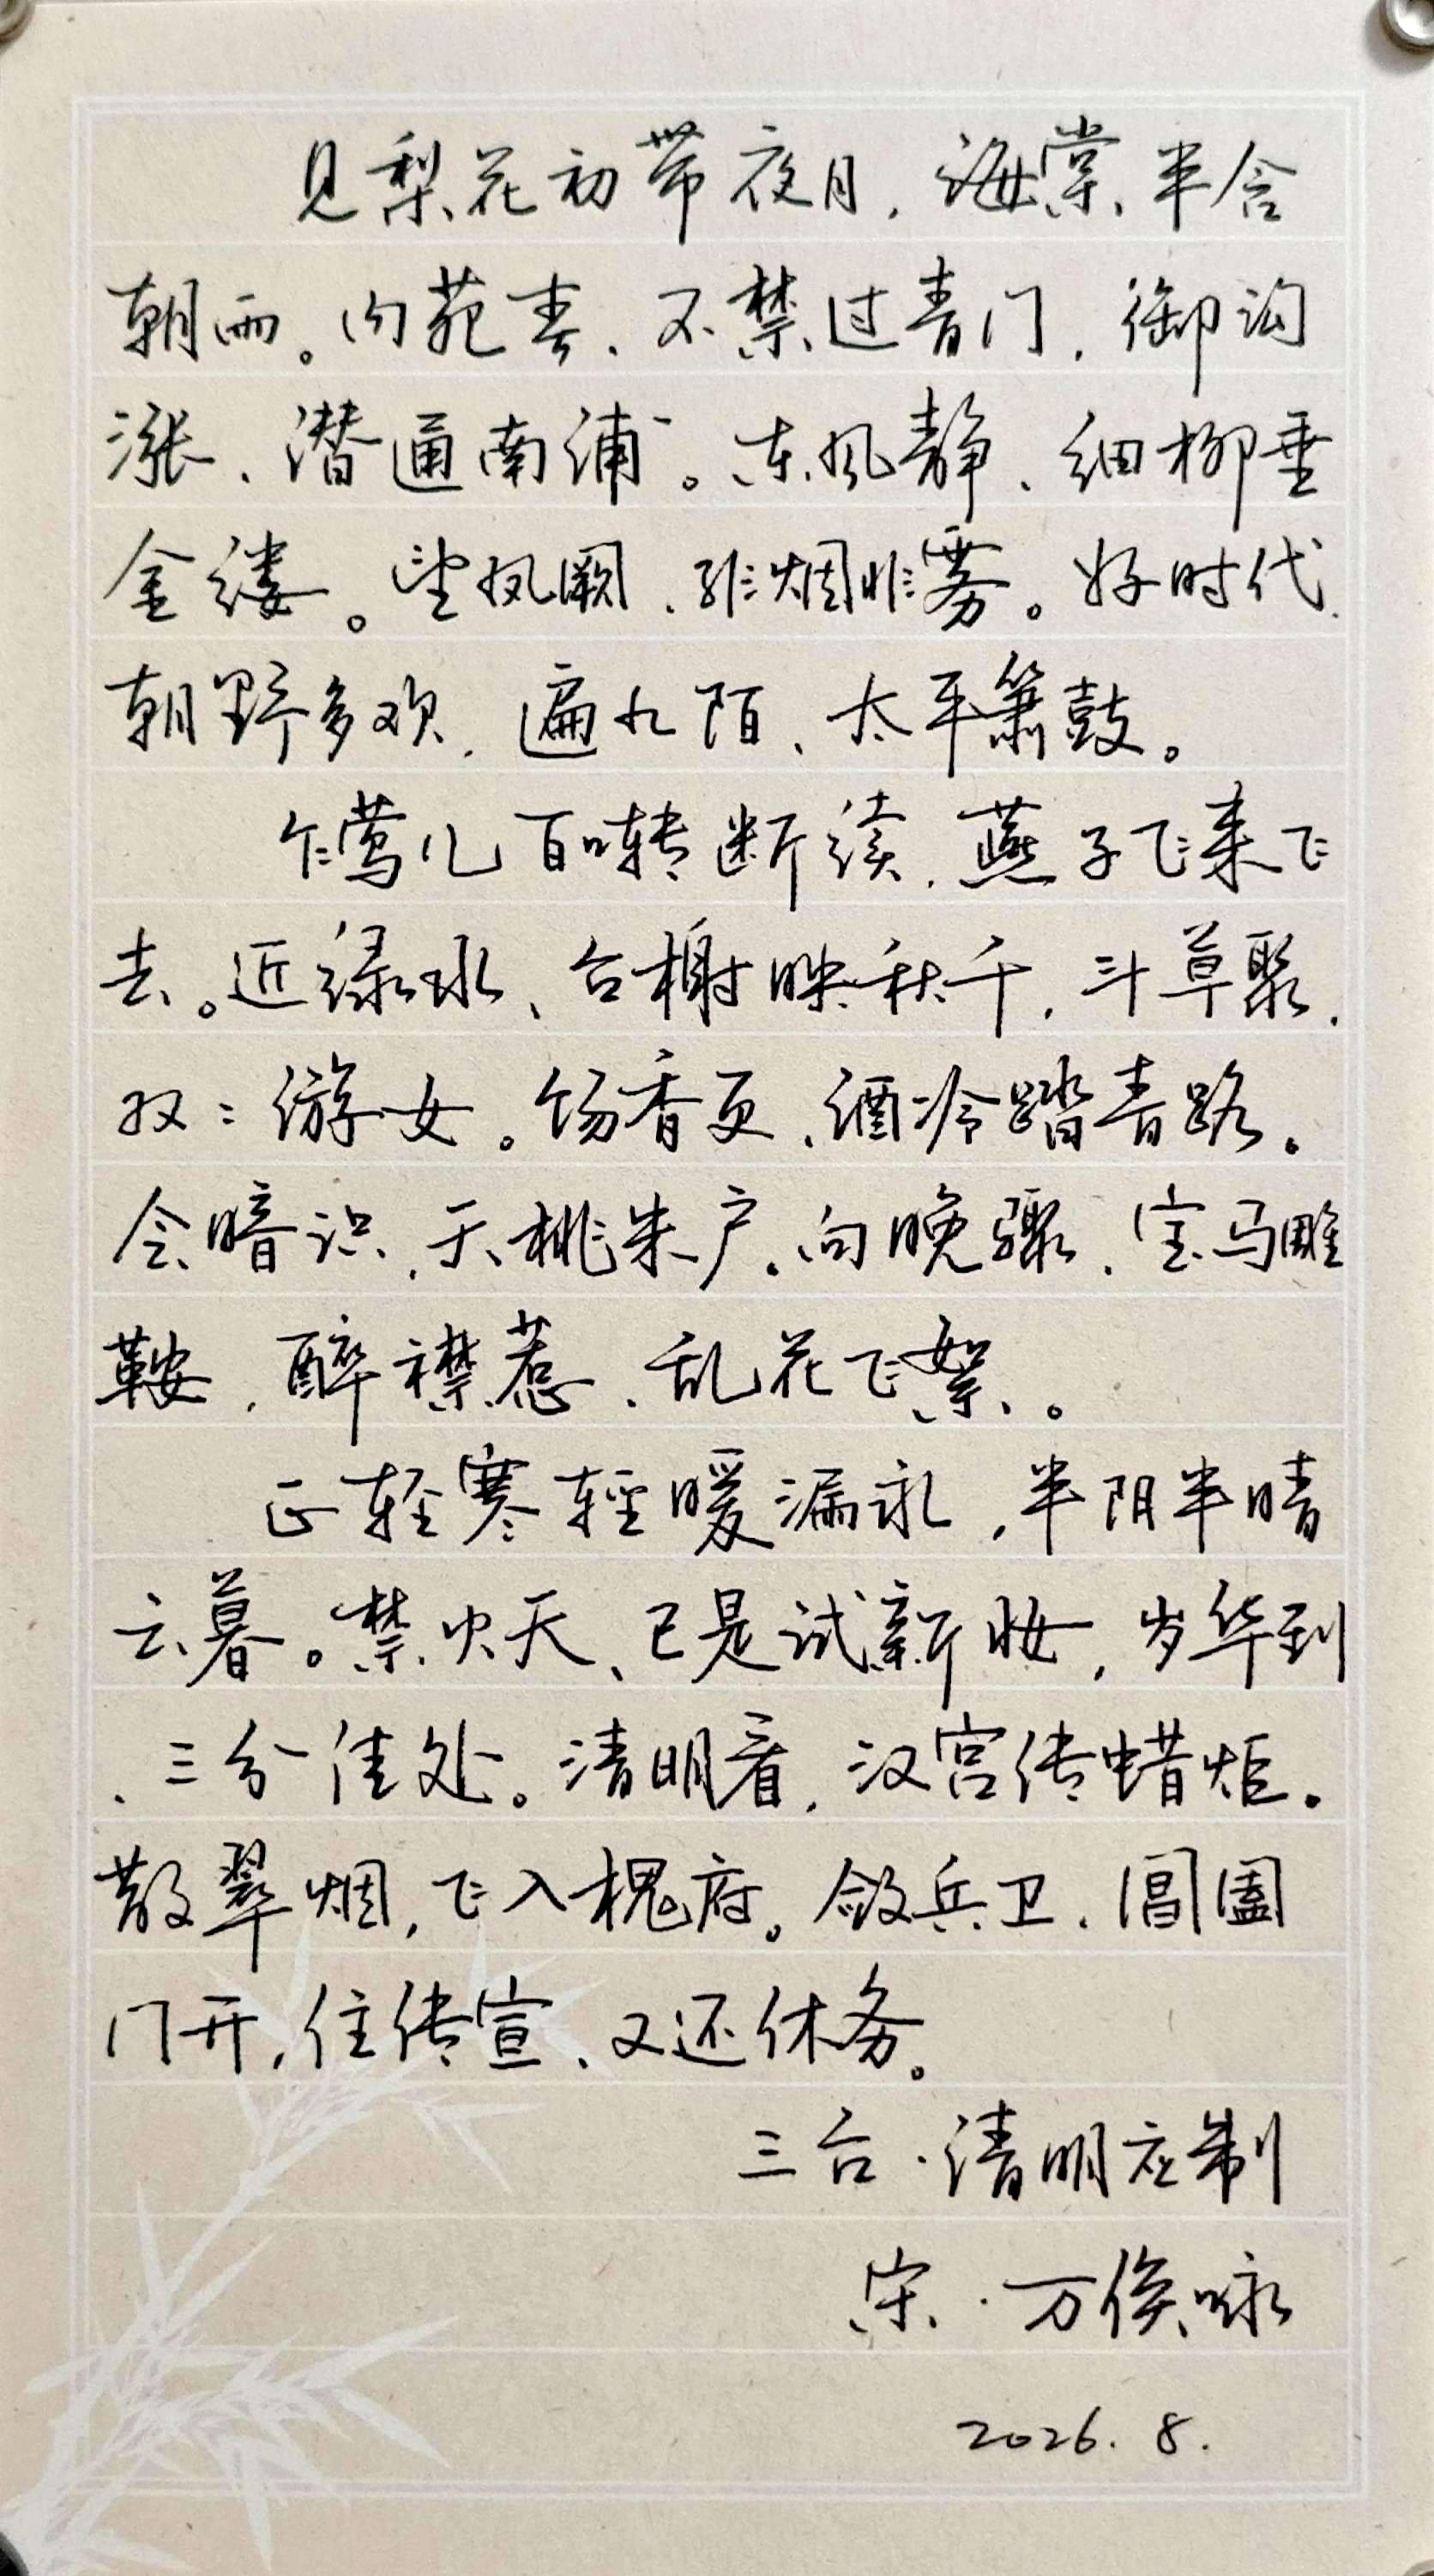 见梨花初带夜月，海棠、半含
朝雨。内苑春、不禁过青门，御沟
涨、潜通南浦。东风静、细柳垂
金缕。望凤阙、非烟非雾。好时代、
朝野多欢，遍九陌、太平箫鼓。
乍莺儿百啭断续，燕子飞来飞
去。近绿水、台榭映秋千，斗草聚、
双：游女。饧香更、酒冷踏青路。
会暗识、夭桃朱户。向晚骤、宝马雕
鞍，醉襟惹、乱花飞絮。
正轻寒輕暖漏永，半阴半晴
云暮。禁火天、已是试新妆，岁华到
、三分佳处。清明看，汉宫传蜡炬。
散翠烟，飞入槐府。敛兵卫、阊阖
门开，住传宣、又还休务。
三台·清明应制
宋·万俟咏
2026.8.